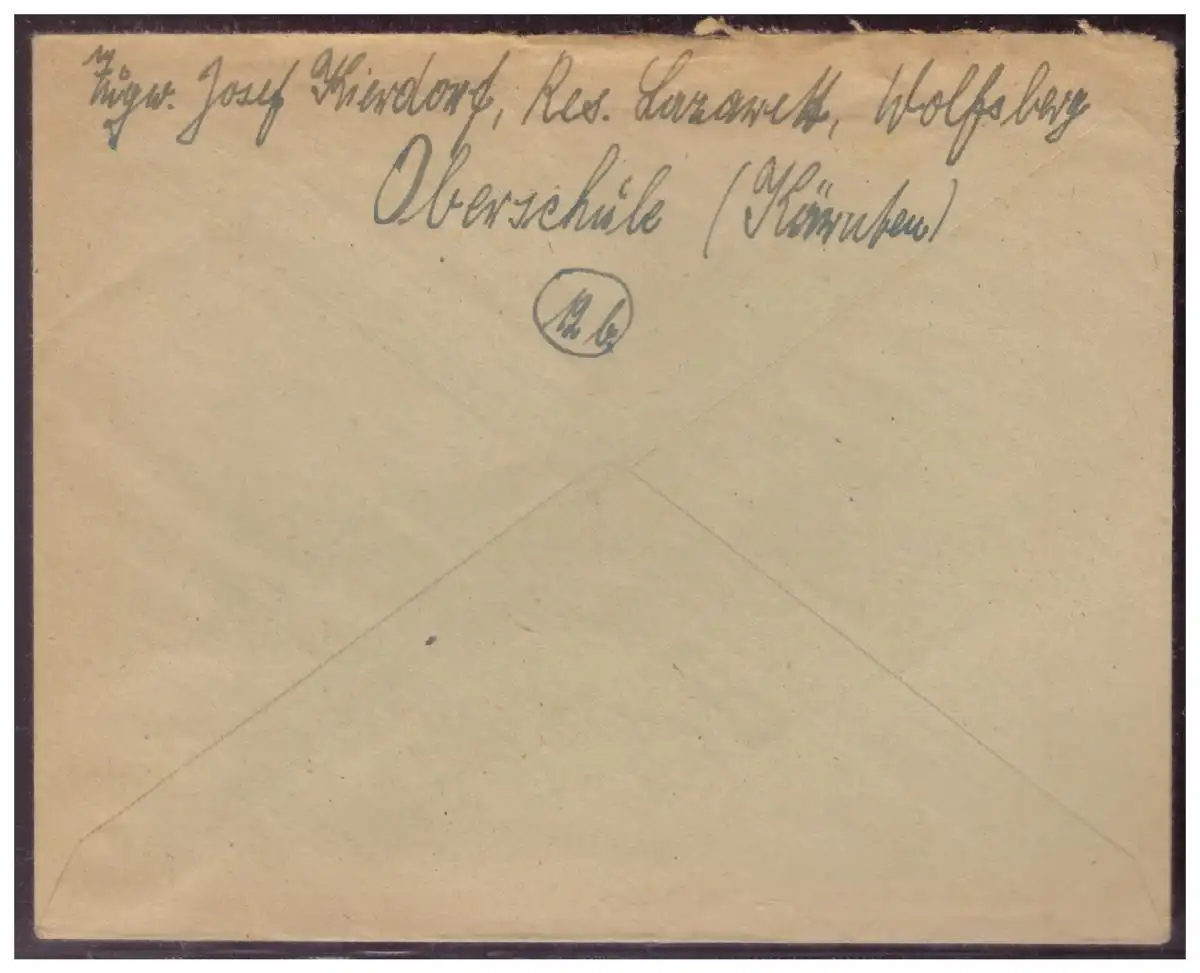 Zugw. Josef Kierdorf, Res. Lazarett, Wolfsberg
Oberschule (Kärnten)
12b